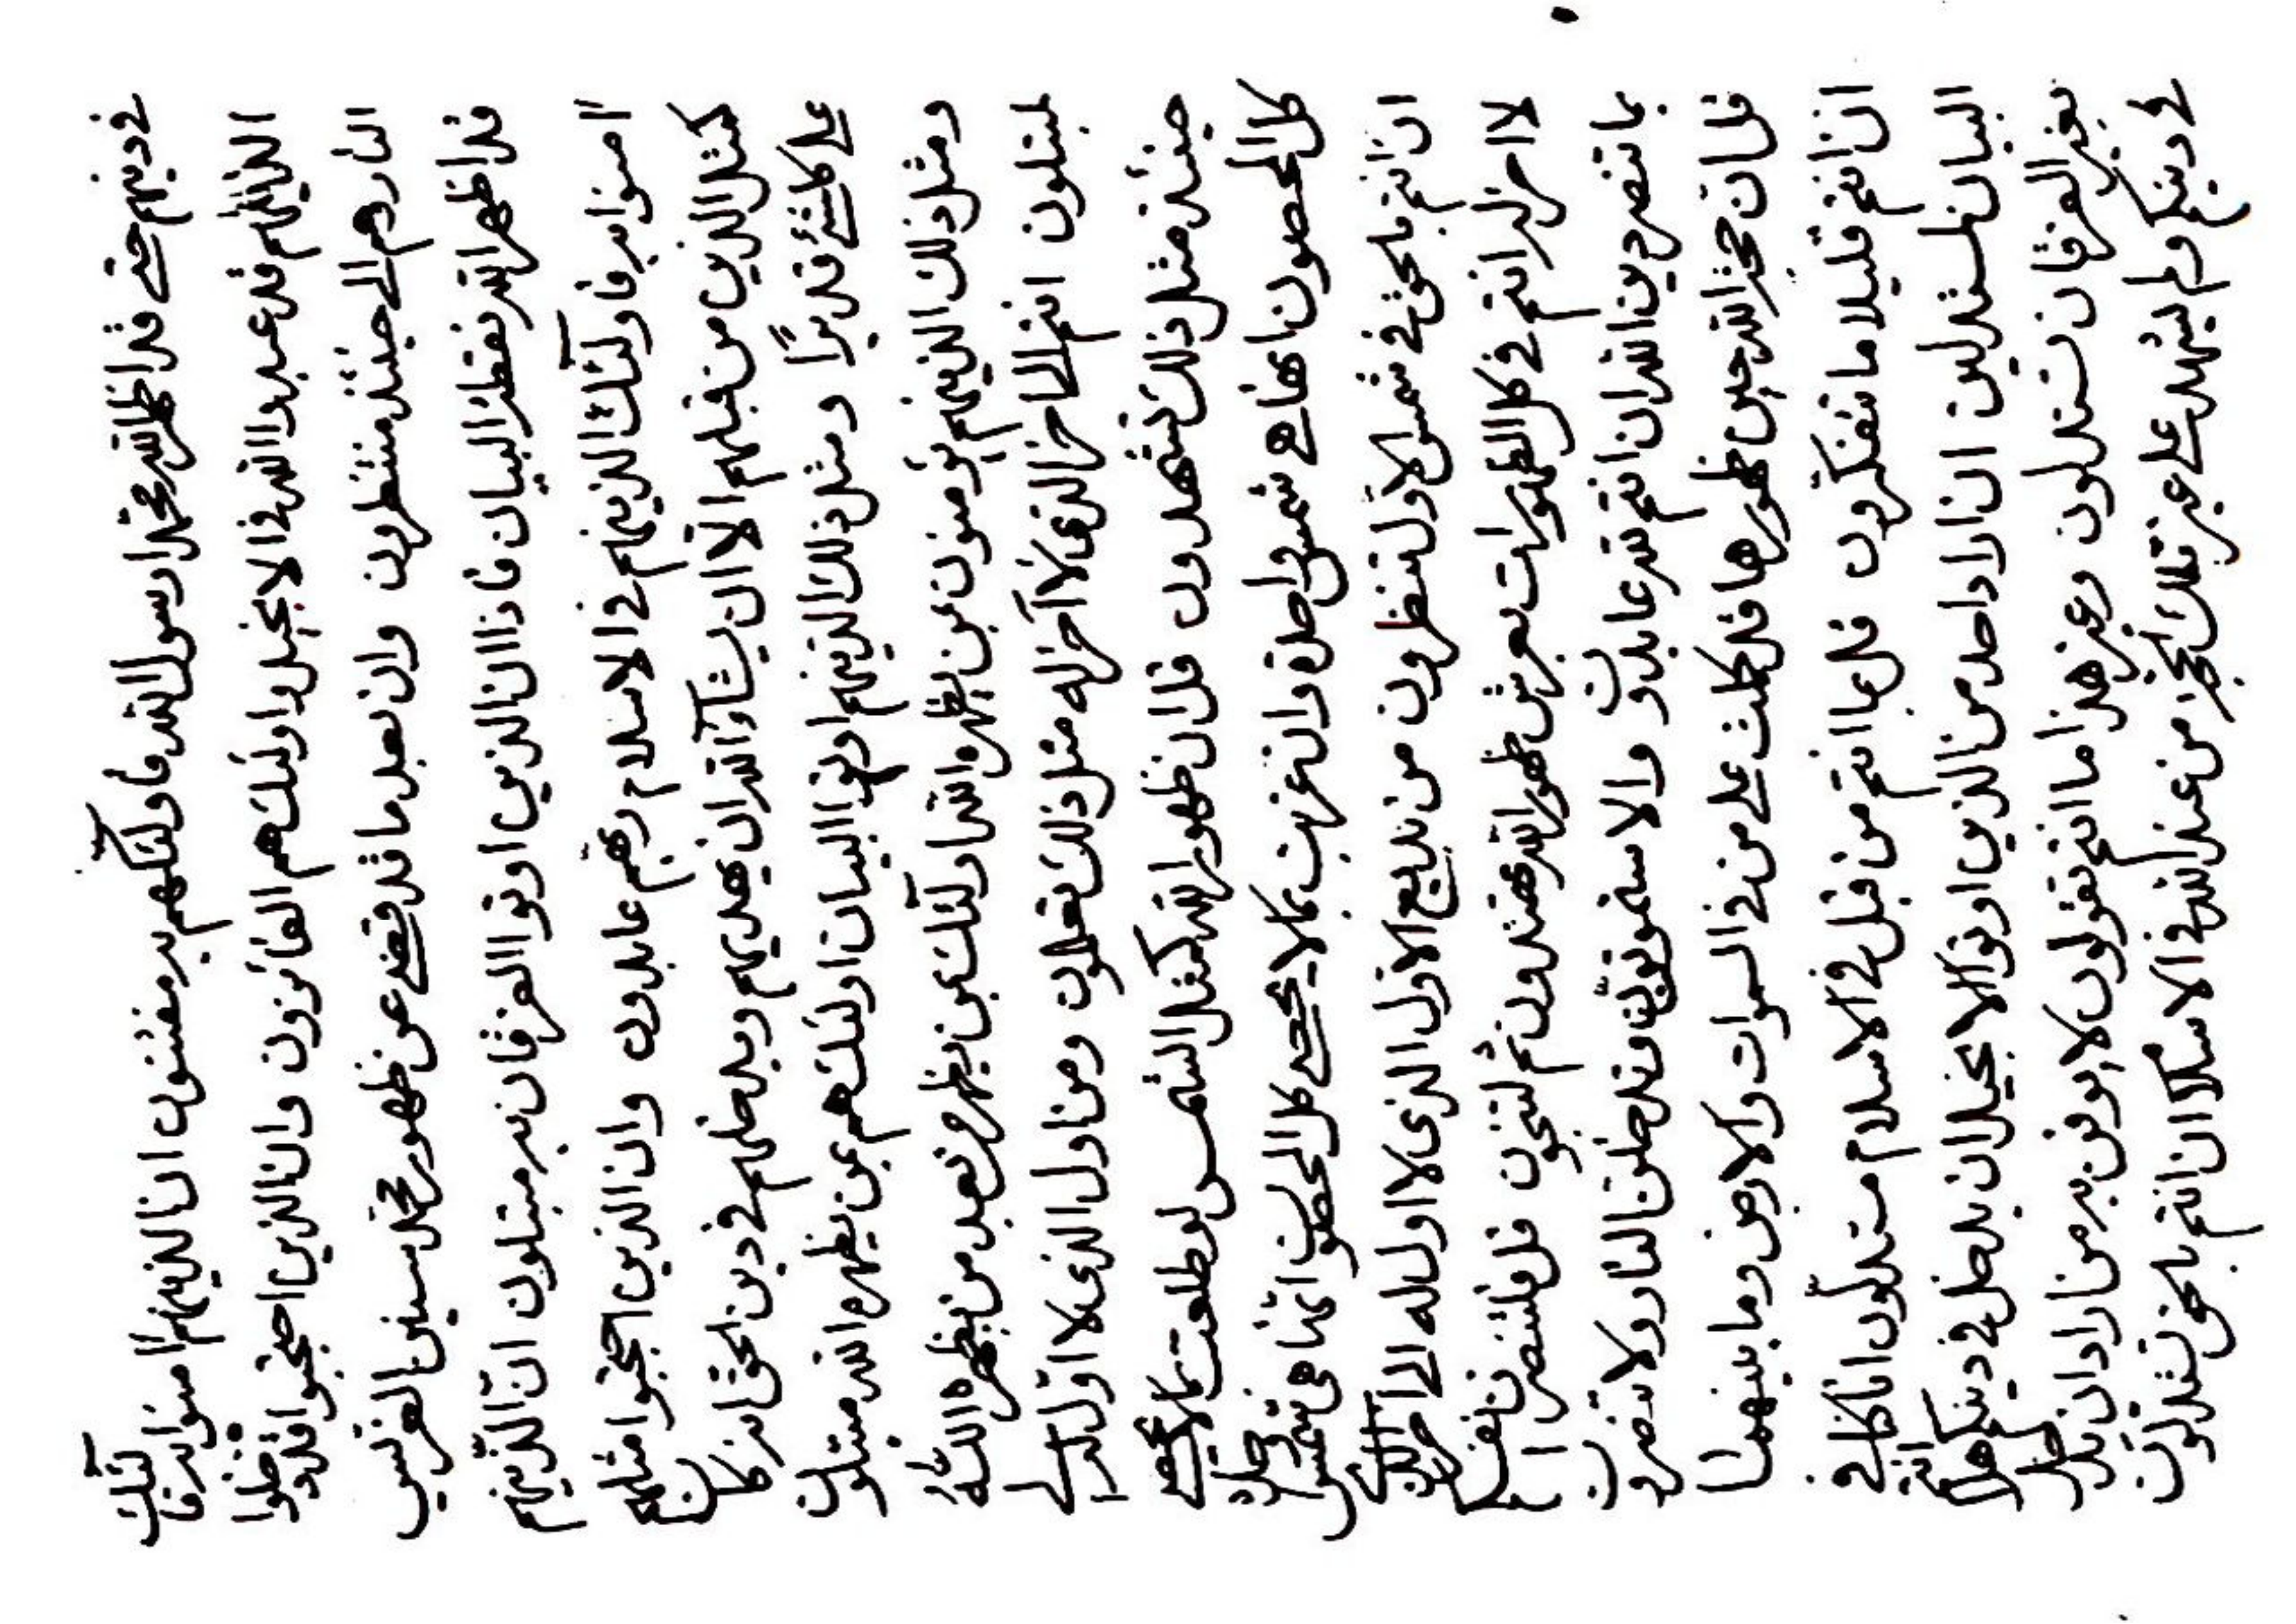 في دينهم حتى قد اظهر الله محمدا رسول الله فاولئكهم به مفتنون ان الذينهم امنوا به فاولئك
الذينهم قد عبدوا الله في الانجيل واولئك هم الفائزون وان الذين احتجبوا قد دخلوا
النار وهم الى حينئذ منتظرون وان بعد ما قد قضى عن ظهور محمد سنين الغرس
قد اظهر الله نقطة البيان فاذا ان الذين اوتوا الفرقان به مبتلون ان الذينهم
امنوا به فاولئك الذينهم في الاسلام ربهم عابدون وان الذين احتجبوا مثلهم
كمثل الذين من قبلهم الا ان يشآء الله ان يهديهم ويدخلهم في دين الحق انه كان
على كلشئ قديرًا ومثل ذلك الذينهم اوتوا البيان اولئك هم بمن يظهره الله مبتلون
ومثل ذلك الذينهم يؤمنون بمن يظهره الله اولئك بمن يظهر من بعد من يظهره الله
لمبتلون انتم الى اخر الذي لا آخر له مثل ذلك تعلمون ومن اول الذي لا اول له الى
حينئذ مثل ذلك تشهدون قل ان ظهور الله كمثل الشمس لو طلعت بما لا يحصى
كل المحصون انها هي شمس واحدة وان غربت بما لا يحصى كل المحصون انما هي شمس واحدة
ان انتم بالحق في شمس الاول تنظرون من بديع الاول الذي لا اول له الى اخر الذي
لا اخر له انتم في كل الظهورات بعرش ظهور الله تهتدون ثم لتنجون قل فلتنصرن انفسكم
بما تنصر دين الله ان انتم لله عابدون والا ستموتون وتدخلن النار ولا تنصرون
قل ان حجة الله حين ظهورها قد كملت على من في السموات والارض وما بينهما
ان انتم قليلا ما تتفكرون قل بما انتم من قبل في الاسلام مستدلون انا كنا في
البيان لمستدلين ان اراد احد من الذين اوتوا الانجيل ان يدخل في دينكم هل انتم
بغير الفرقان تستدلون وغير هذا ما انتم تقولون لا يوقن به من اراد ان يدخل
في دينكم ولم يشهد على غير تلك الحجة من عند الله في الاسلام ان انتم بالحق تستدلون